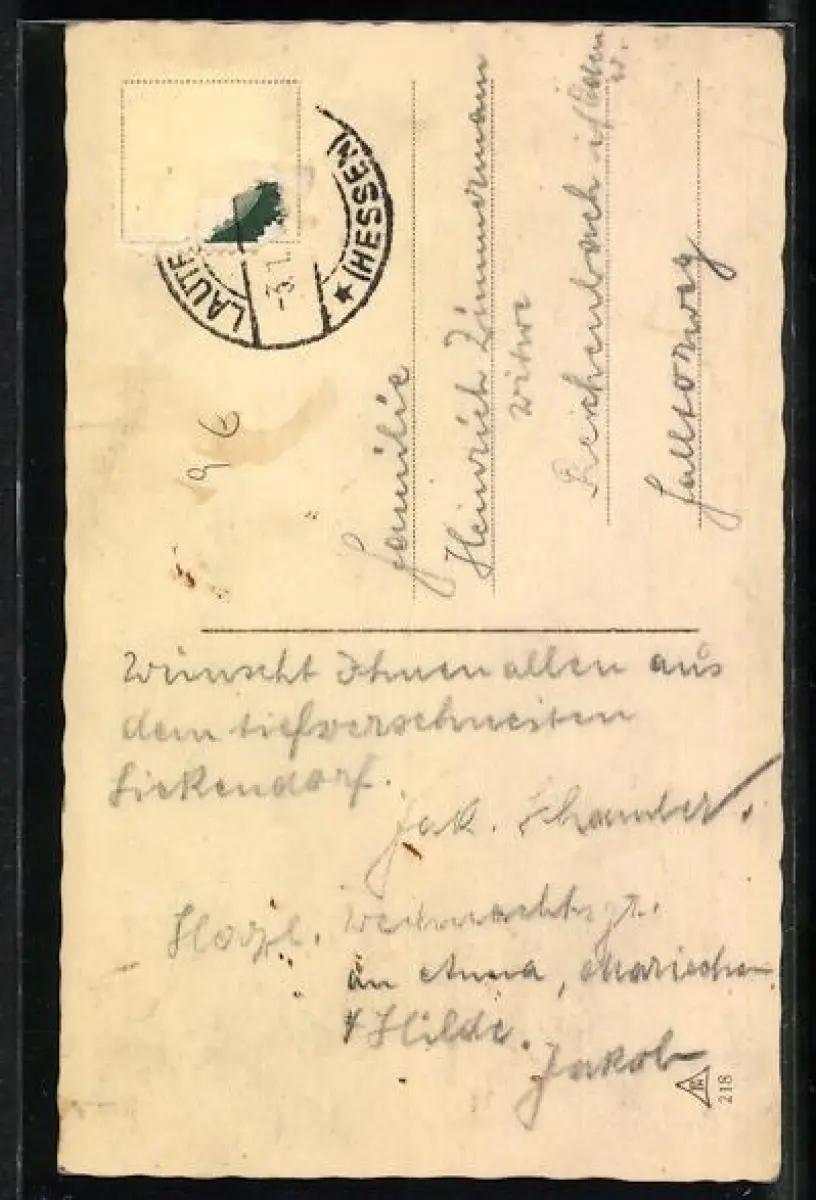 LAUTE
(HESSEN)
-3.1.
96
Familie
Heinrich Zimmermann
Witwe
Reichenbach i/Oden
w.
Falltorweg
Wünscht Ihnen allen aus
dem tiefverschneiten
Lickendorf.
Jak.
Herzl. Weihnachtsgr.
an Anna, Mariechen
+ Hilde.
Jakob
218